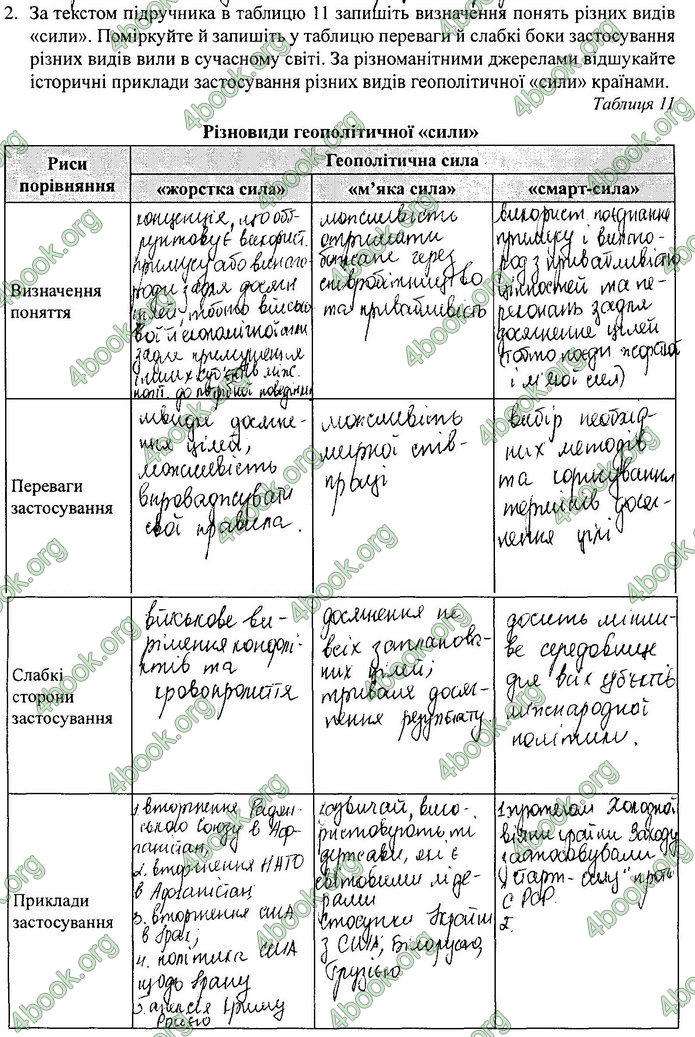 2. За текстом підручника в таблицю 11 запишіть визначення понять різних видів
«сили». Поміркуйте й запишіть у таблицю переваги й слабкі боки застосування
різних видів вили в сучасному світі. За різноманітними джерелами відшукайте
історичні приклади застосування різних видів геополітичної «сили» країнами.
Таблиця 11
Різновиди геополітичної «сили»
Риси
порівняння
Геополітична сила
«жорстка сила»
«м’яка сила»
«смарт-сила»
Визначення
поняття
концепція, що обґ-
рунтовує використ.
примусу або винаго-
роди задля досягн
цілей, тобто військо
вої й економічної
задля примушення
інших суб'єктів між.
політ. до потрібної поведінки
можливість
отримати
бажане через
співробітництво
та привабливість
використ. поєднання
примусу і винаго-
род з привабливістю
цінностей та пе-
реконань задля
досягнення цілей
(тобто поєдн жорсткої
і м'якої сил)
Переваги
застосування
швидке досягне-
ння цілей,
можливість
впроваджувати
свої правила.
можливість
мирної спів-
праці
вибір необхід-
них методів
та коригування
термінів досяг-
нення цілі
Слабкі
сторони
застосування
військове ви-
рішення конфлі-
ктів та
кровопролиття
досягнення не
всіх запланова-
них цілей;
тривале досяг-
нення результату
досить мінли-
ве середовище
для всіх суб'єктів
міжнародної
політики.
Приклади
застосування
1. вторгнення Радян-
ського Союзу в Аф-
ганістан;
2. вторгнення НАТО
в Афганістан
3. вторгнення США
в Ірак;
4. політика США
щодо Ірану
5. анексія Криму
Росією
зазвичай, вико-
ристовують ті
держави, які є
світовими ліде-
рами
стосунки України
з США, Білорусією,
Грузією
1. протягом Холодної
війни країни Заходу
застосовували
"смарт-силу" проти
СРСР.
2.
4book.org